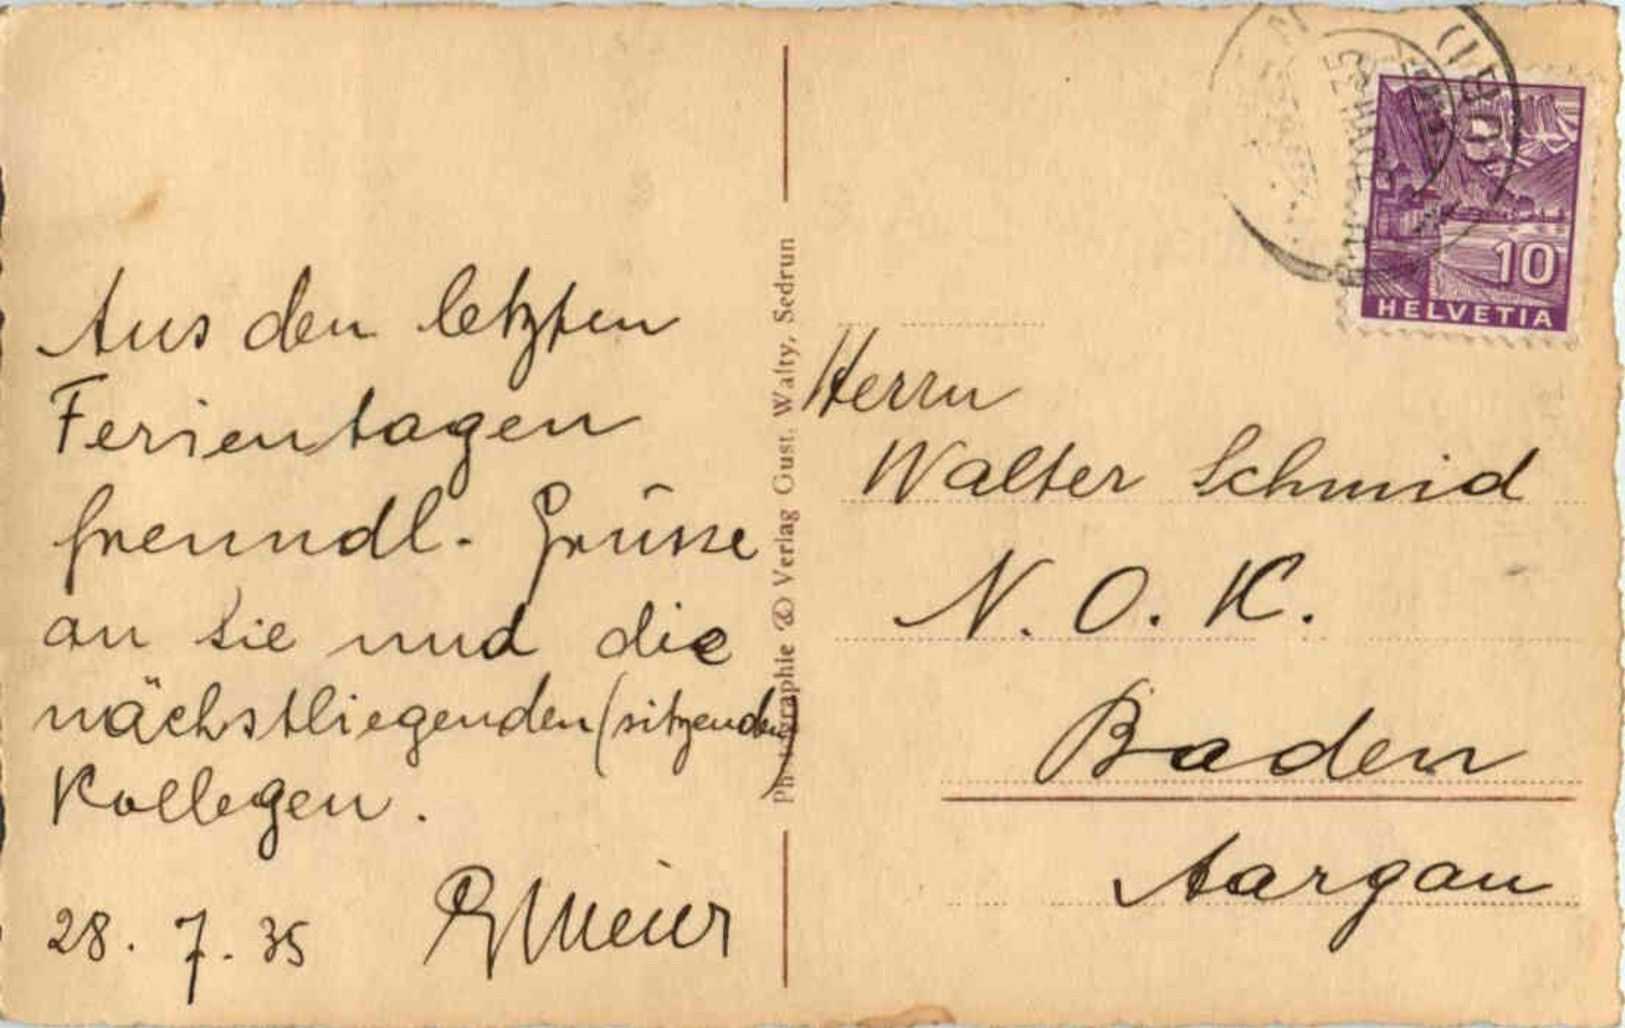 Aus den letzten
Ferientagen
freundl. Grüsse
an Sie und die
nächstliegenden (sitzenden)
Kollegen.
28. 7. 35 Meier
Photographie & Verlag Gust. Walty, Sedrun
10
HELVETIA
Herrn
Walter Schmid
N. O. K.
Baden
Aargau